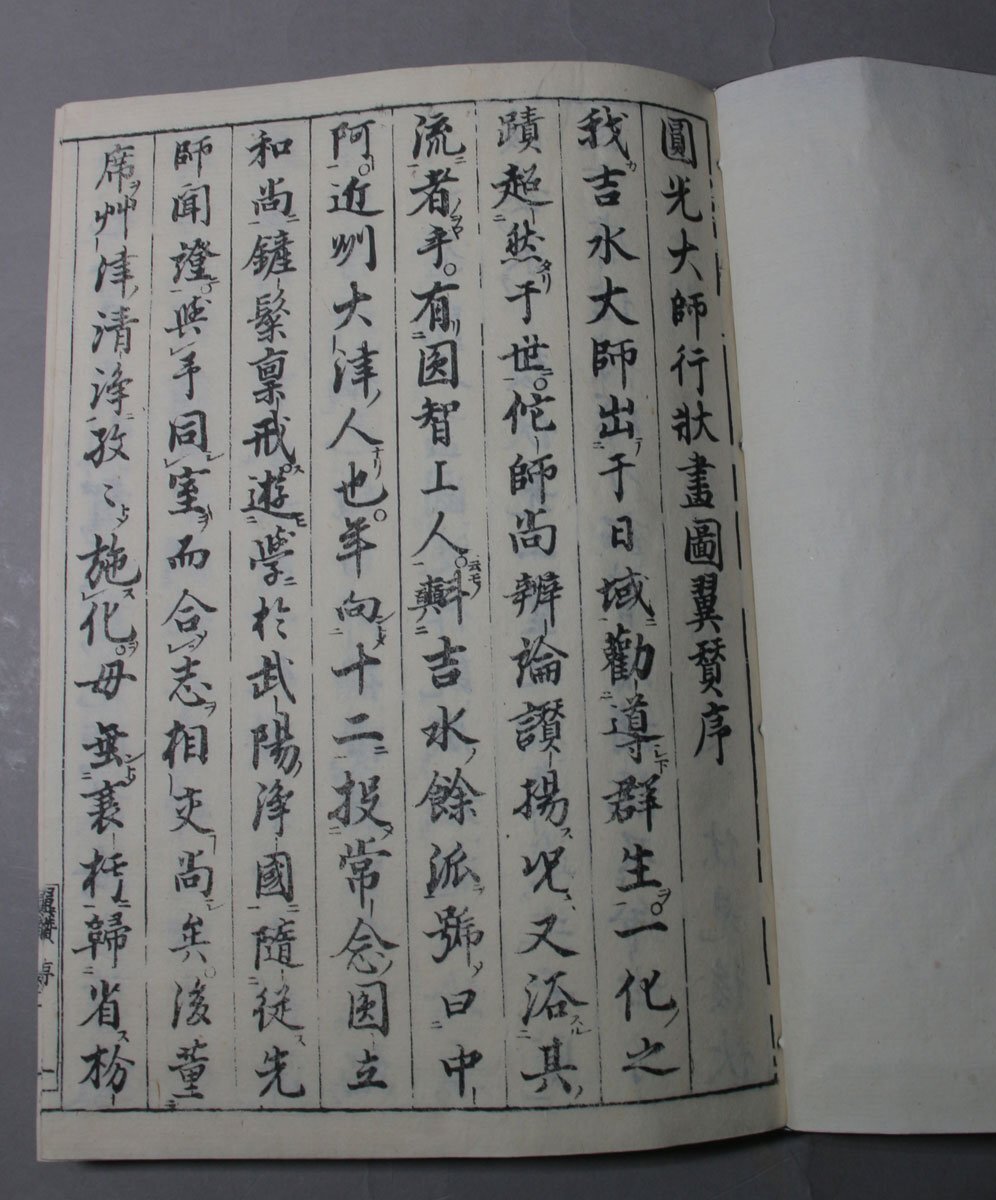 圓光大師行狀畫圖翼賛序
我吉水大師出于日域勸導群生。一化之
蹟超然于世。佗師尚辨論讃揚况又浴其
流者乎。有圓智上人。吉水餘派號曰中
阿。近州大津人也。年向十二投常念圓立
和尚鏟髪稟戒遊學於武陽淨國隨從先
師聞證與予同室而合志相交尚矣。後董
席艸津清淨孜〻施化。毋無衰枉歸省枌
翼賛 序 一